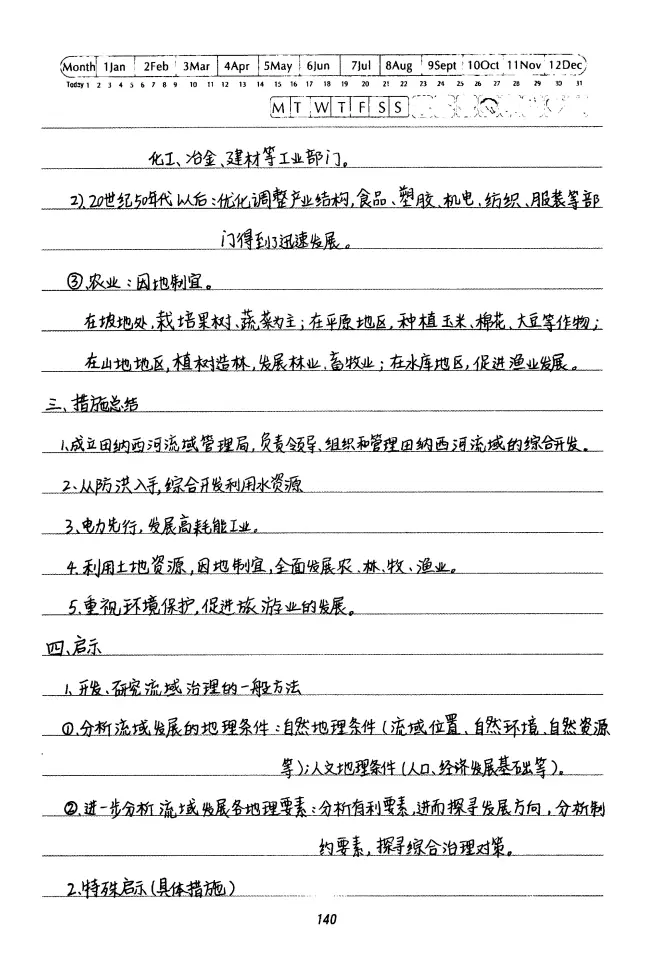 Month 1Jan 2Feb 3Mar 4Apr 5May 6Jun 7Jul 8Aug 9Sept 10Oct 11Nov 12Dec
Today 1 2 3 4 5 6 7 8 9 10 11 12 13 14 15 16 17 18 19 20 21 22 23 24 25 26 27 28 29 30 31
M T W T F S S
化工、冶金、建材等工业部门。
2).20世纪50年代以后:优化调整产业结构,食品、塑胶、机电、纺织、服装等部
门得到了迅速发展。
③.农业:因地制宜。
在坡地处,栽培果树、蔬菜为主;在平原地区,种植玉米、棉花、大豆等作物;
在山地地区,植树造林,发展林业、畜牧业;在水库地区,促进渔业发展。
三、措施总结
1.成立田纳西河流域管理局,负责领导、组织和管理田纳西河流域的综合开发。
2、从防洪入手,综合开发利用水资源
3、电力先行,发展高耗能工业。
4.利用土地资源,因地制宜,全面发展农、林、牧、渔业。
5.重视环境保护,促进旅游业的发展。
四、启示
1、开发、研究流域治理的一般方法
①.分析流域发展的地理条件:自然地理条件(流域位置、自然环境、自然资源
等);人文地理条件(人口、经济发展基础等)。
②.进一步分析流域发展各地理要素:分析有利要素,进而探寻发展方向,分析制
约要素,探寻综合治理对策。
2.特殊启示(具体措施)
140